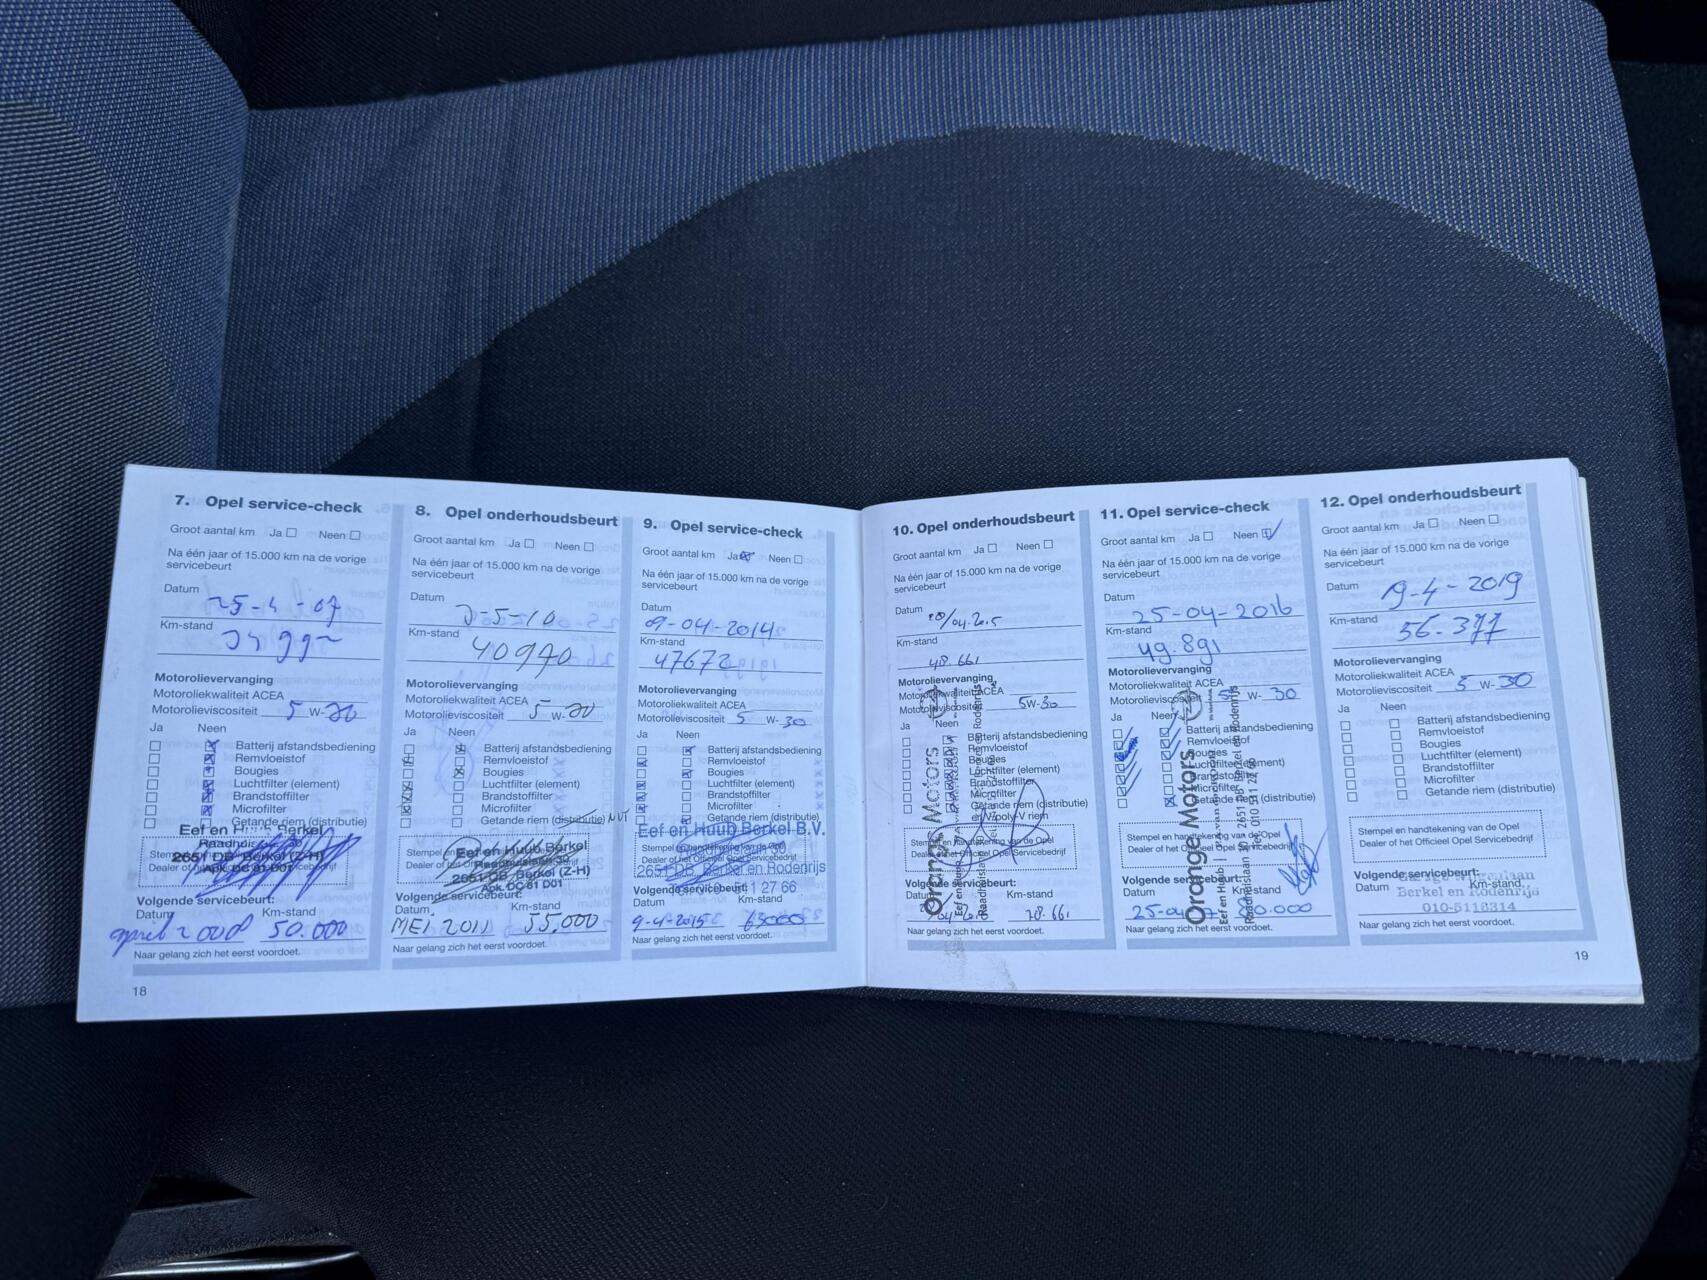 7. Opel service-check
Groot aantal km Ja Neen
Na één jaar of 15.000 km na de vorige
servicebeurt
Datum
25-4-07
Km-stand
Motorolievervanging
Motoroliekwaliteit ACEA
Motorolieviscositeit 5 W-30
Ja Neen
Batterij afstandsbediening
Remvloeistof
Bougies
Luchtfilter (element)
Brandstoffilter
Microfilter
Getande riem (distributie)
Eef en Huub Berkel
Raadhuislaan 30
2651 DB Berkel (Z-H)
Volgende servicebeurt:
Datum Km-stand
april 2008 50.000
Naar gelang zich het eerst voordoet.
18
8. Opel onderhoudsbeurt
Groot aantal km Ja Neen
Na één jaar of 15.000 km na de vorige
servicebeurt
Datum
-5-10
Km-stand
40970
Motorolievervanging
Motoroliekwaliteit ACEA
Motorolieviscositeit 5 W-30
Ja Neen
Batterij afstandsbediening
Remvloeistof
Bougies
Luchtfilter (element)
Brandstoffilter
Microfilter
Getande riem (distributie)
Eef en Huub Berkel
Raadhuislaan 30
2651 DB Berkel (Z-H)
Apk. DC 81 D01
Volgende servicebeurt:
Datum Km-stand
MEI 2011 55.000
Naar gelang zich het eerst voordoet.
9. Opel service-check
Groot aantal km Ja Neen
Na één jaar of 15.000 km na de vorige
servicebeurt
Datum
09-04-2014
Km-stand
47672
Motorolievervanging
Motoroliekwaliteit ACEA
Motorolieviscositeit 5 W-30
Ja Neen
Batterij afstandsbediening
Remvloeistof
Bougies
Luchtfilter (element)
Brandstoffilter
Microfilter
Getande riem (distributie)
Eef en Huub Berkel B.V.
Stempel en handtekening van de Opel
Raadhuislaan 30
Dealer of het Officieel Opel Servicebedrijf
2651 DB Berkel en Rodenrijs
Volgende servicebeurt:
Datum Km-stand
9-4-2015 63000
Naar gelang zich het eerst voordoet.
10. Opel onderhoudsbeurt
Groot aantal km Ja Neen
Na één jaar of 15.000 km na de vorige
servicebeurt
Datum
Km-stand
48.661
Motorolievervanging
Motoroliekwaliteit ACEA
Motorolieviscositeit 5W-30
Ja Neen
Batterij afstandsbediening
Remvloeistof
Bougies
Luchtfilter (element)
Brandstoffilter
Microfilter
Getande riem (distributie)
en V/poly-V riem
Orange Motors
Stempel en handtekening van de Opel
Dealer of het Officieel Opel Servicebedrijf
Volgende servicebeurt:
Datum Km-stand
78.661
Naar gelang zich het eerst voordoet.
11. Opel service-check
Groot aantal km Ja Neen
Na één jaar of 15.000 km na de vorige
servicebeurt
Datum
25-04-2016
Km-stand
49.891
Motorolievervanging
Motoroliekwaliteit ACEA
Motorolieviscositeit 5 W- 30
Ja Neen
Batterij afstandsbediening
Remvloeistof
Bougies
Luchtfilter (element)
Brandstoffilter
Microfilter
Getande riem (distributie)
Orange Motors
Stempel en handtekening van de Opel
Dealer of het Officieel Opel Servicebedrijf
Volgende servicebeurt:
Datum Km-stand
80.000
Naar gelang zich het eerst voordoet.
12. Opel onderhoudsbeurt
Groot aantal km Ja Neen
Na één jaar of 15.000 km na de vorige
servicebeurt
Datum
19-4-2019
Km-stand
56.377
Motorolievervanging
Motoroliekwaliteit ACEA
Motorolieviscositeit 5 W- 30
Ja Neen
Batterij afstandsbediening
Remvloeistof
Bougies
Luchtfilter (element)
Brandstoffilter
Microfilter
Getande riem (distributie)
Stempel en handtekening van de Opel
Dealer of het Officieel Opel Servicebedrijf
Volgende servicebeurt:
Datum Km-stand
Berkel en Rodenrijs
010-5116314
Naar gelang zich het eerst voordoet.
19